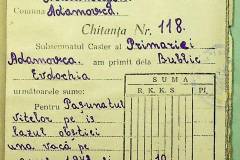 Comuna Adamovca.
Chitanța Nr. 118.
Subsemnatul Casier al Primariei
Adamovca. am primit dela Bublic
Evdochia
următoarele sume:
SUMA
R. K. K. S
Pentru Pașunatul
vitelor pe is
lazul obștiei
una vacă pe
10